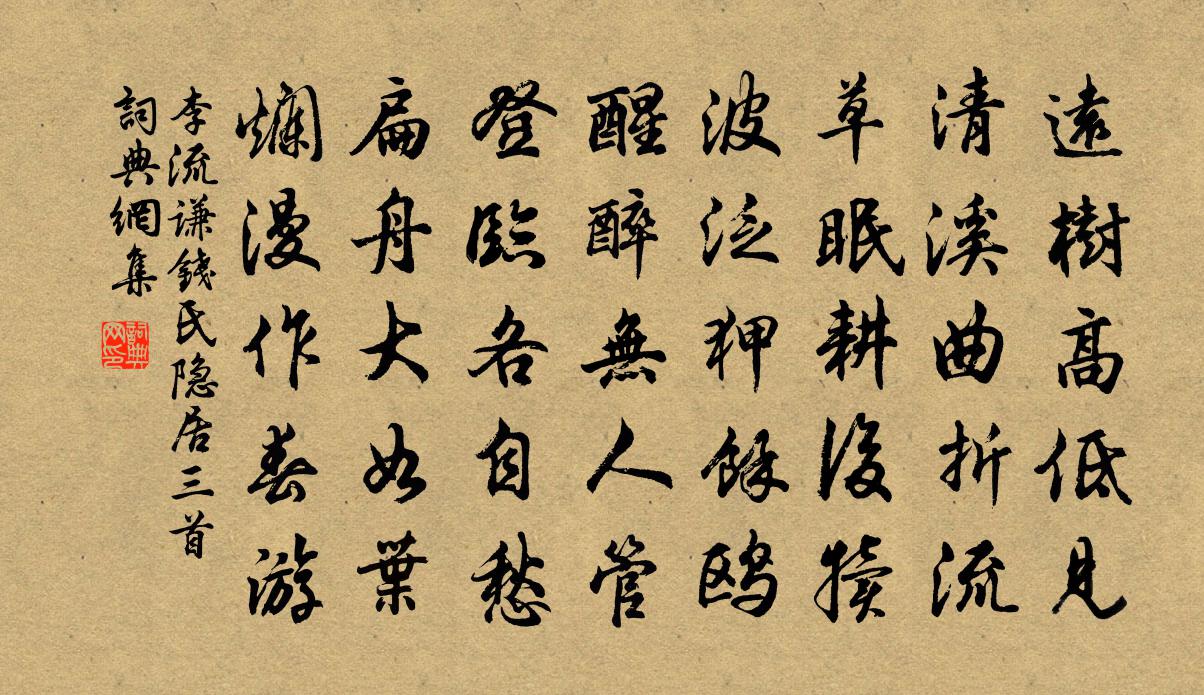 遠樹高低見
清溪曲折流
草眠耕後犢
波泛狎餘鸥
醒醉無人管
登臨各自愁
扁舟大如葉
爛漫作春游
李流谦錢氏隐居三首
詞典網集
詞典网印